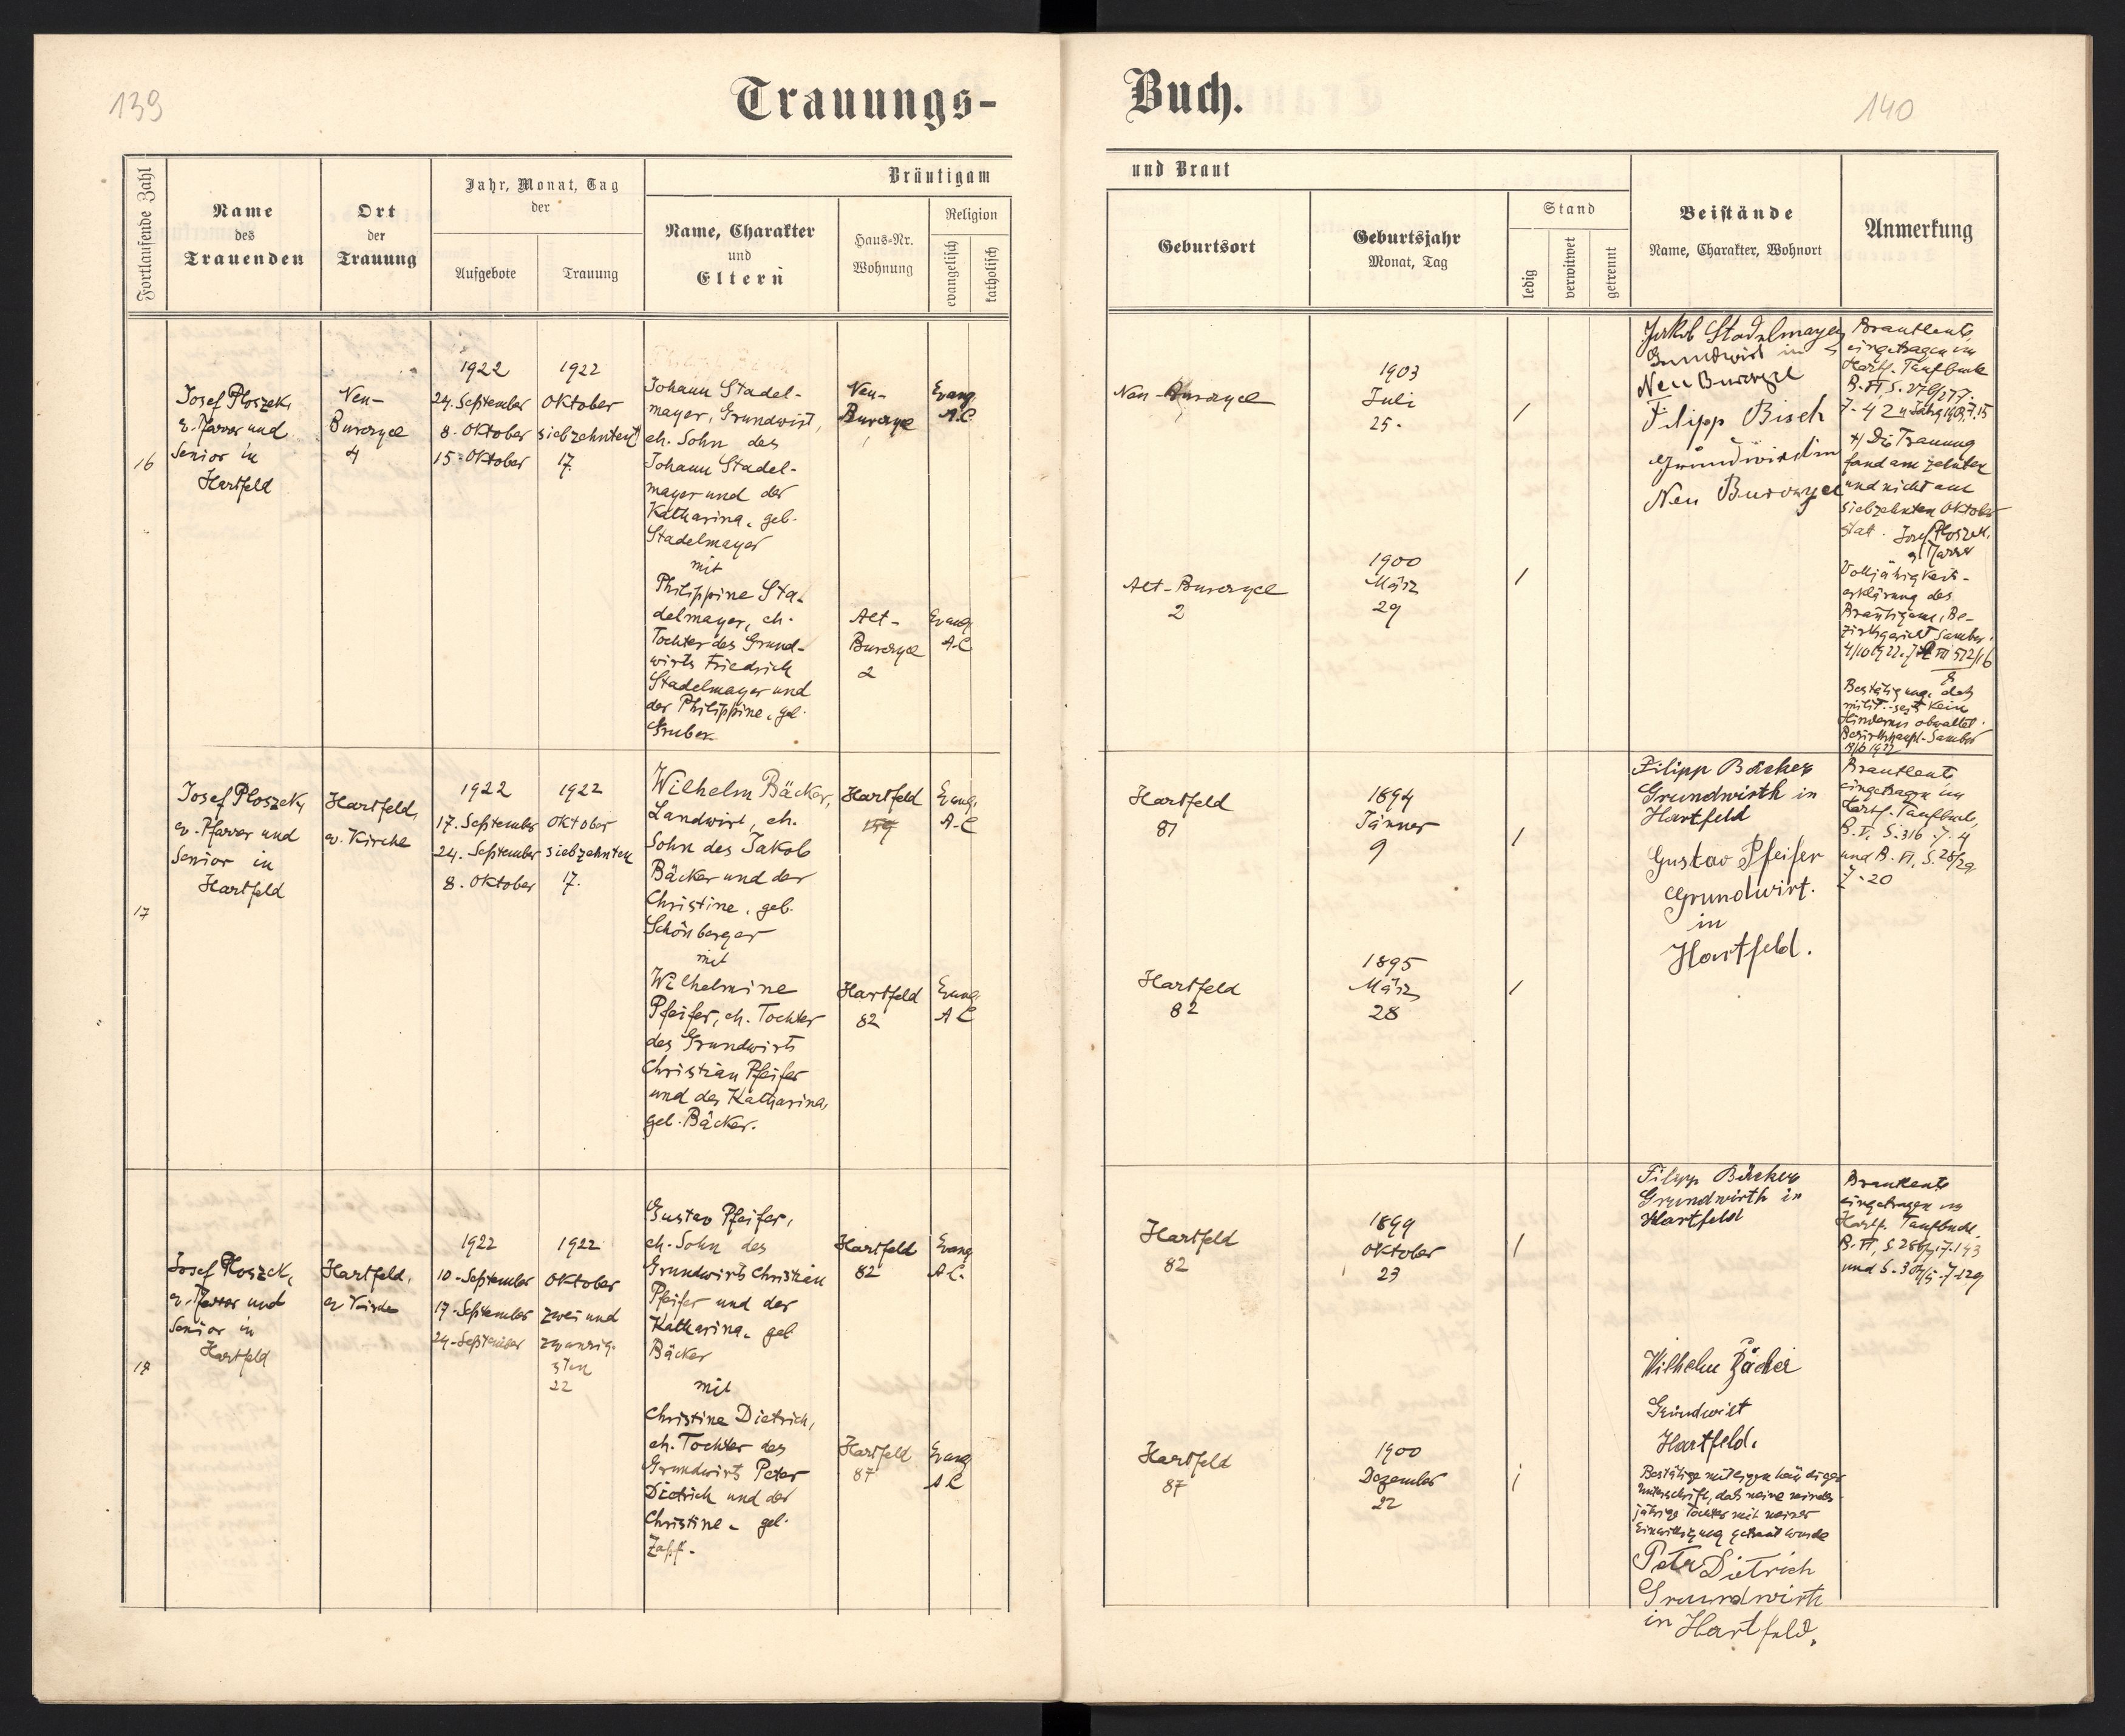 139
Trauungs-
Buch.
140
Fortlaufende Zahl
Name
des
Trauenden
Ort
der
Trauung
Jahr, Monat, Tag
der
Aufgebote
Trauung
Bräutigam
Name, Charakter
und
Eltern
Haus-Nr.
Wohnung
Religion
evangelisch
katholisch
und Braut
Geburtsort
Geburtsjahr
Monat, Tag
Stand
ledig
verwitwet
getrennt
Beistände
Name, Charakter, Wohnort
Anmerkung
16
Josef Ploszek,
ev. Pfarrer und
Senior in
Hartfeld
Neu-
Burczyce
4
1922
24. September
8. Oktober
15. Oktober
1922
Oktober
siebzehnten
17.
Johann Stadel-
mayer, Grundwirt,
eh. Sohn des
Johann Stadel-
mayer und der
Katharina, geb.
Stadelmayer
mit
Philippine Sta-
delmayer, eh.
Tochter des Grund-
wirts Friedrich
Stadelmayer und
der Philippine, geb.
Gruber
Neu-
Burczyce
Evang.
A.C.
Alt-
Burczyce
2
Evang.
A.C.
Neu-Burczyce
1903
Juli
25.
/
Alt-Burczyce
2
1900
März
29
/
Jakob Stadelmayer
Grundwirt in
Neu Burczyce
Filipp Bisch
Grundwirt in
Neu Burczyce
Brautleute
eingetragen im
Hartf. Taufbuche
B. VI, S. 276/277.
+) Die Trauung
fand am zehnten
und nicht am
siebzehnten Oktober
statt. Josef Ploszek,
ev. Pfarrer
Volljährigkeits-
erklärung des
Bräutigams, Be-
zirksgericht Sambor
Bestätigung, daß
milit. seits kein
Hindernis obwaltet.
Bezirkshaupt. Sambor
17
Josef Ploszek,
ev. Pfarrer und
Senior in
Hartfeld
Hartfeld,
ev. Kirche
1922
17. September
24. September
8. Oktober
1922
Oktober
siebzehnten
17.
Wilhelm Bäcker,
Landwirt, eh.
Sohn des Jakob
Bäcker und der
Christine, geb.
Schönberger
mit
Wilhelmine
Pfeifer, eh. Tochter
des Grundwirts
Christian Pfeifer
und der Katharina,
geb. Bäcker.
Hartfeld
Evang.
A.C.
Hartfeld
82
Evang.
A C
Hartfeld
81
1894
Jänner
9
/
Hartfeld
82
1895
März
28
/
Filipp Bäcker
Grundwirth in
Hartfeld
Gustav Pfeifer
Grundwirt.
in
Hartfeld.
Brautleute
eingetragen im
Hartf. Taufbuch,
B. V, S. 316. Z. 4
und B. VI, S. 28/29
Z. 20
18
Josef Ploszek,
ev. Pfarrer und
Senior in
Hartfeld
Hartfeld,
ev. Kirche
1922
10. September
17. September
24. September
1922
Oktober
zwei und
zwanzig-
sten
22
Gustav Pfeifer,
eh. Sohn des
Grundwirts Christian
Pfeifer und der
Katharina, geb.
Bäcker
mit
Christine Dietrich,
eh. Tochter des
Grundwirts Peter
Dietrich und der
Christine, geb.
Zapf.
Hartfeld
82
Evang
A.C.
Hartfeld
87
Evang
A C
Hartfeld
82
1899
Oktober
23
/
Hartfeld
87
1900
Dezember
22
/
Filipp Bäcker
Grundwirth in
Hartfeld
Wilhelm Bäcker
Grundwirt
Hartfeld.
Bestätige mit eigenhändiger
Unterschrift, daß meine minder-
jährige Tochter mit meiner
Einwilligung getraut wurde
Peter Dietrich
Grundwirth
in Hartfeld.
Brautleute
eingetragen im
Hartf. Taufbuch.